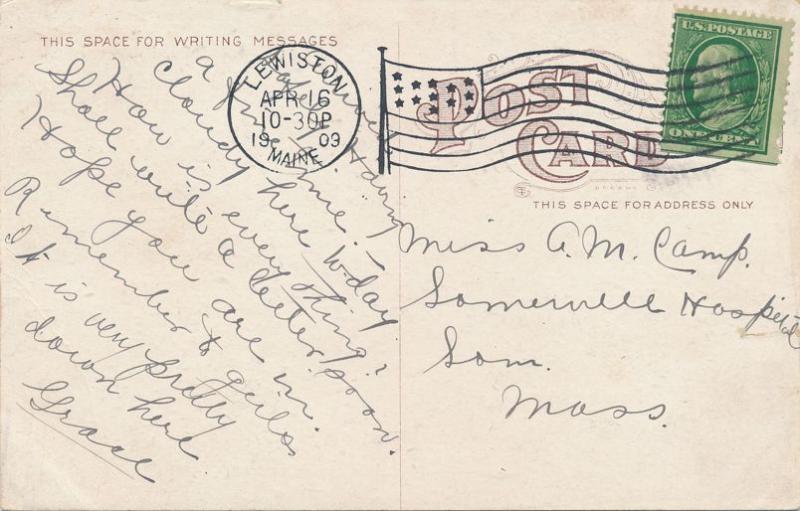 THIS SPACE FOR WRITING MESSAGES
LEWISTON
APR 16
10-30P
1909
MAINE
POST
CARD
U.S. POSTAGE
ONE CENT
THIS SPACE FOR ADDRESS ONLY
A
fine time.
Cloudy here to-day
How is everything?
Shall write a letter soon.
Hope you are in.
Remember to girls
It is very pretty
down here
Grace
Miss A. M. Camp.
Somerville Hospital
Som.
Mass.